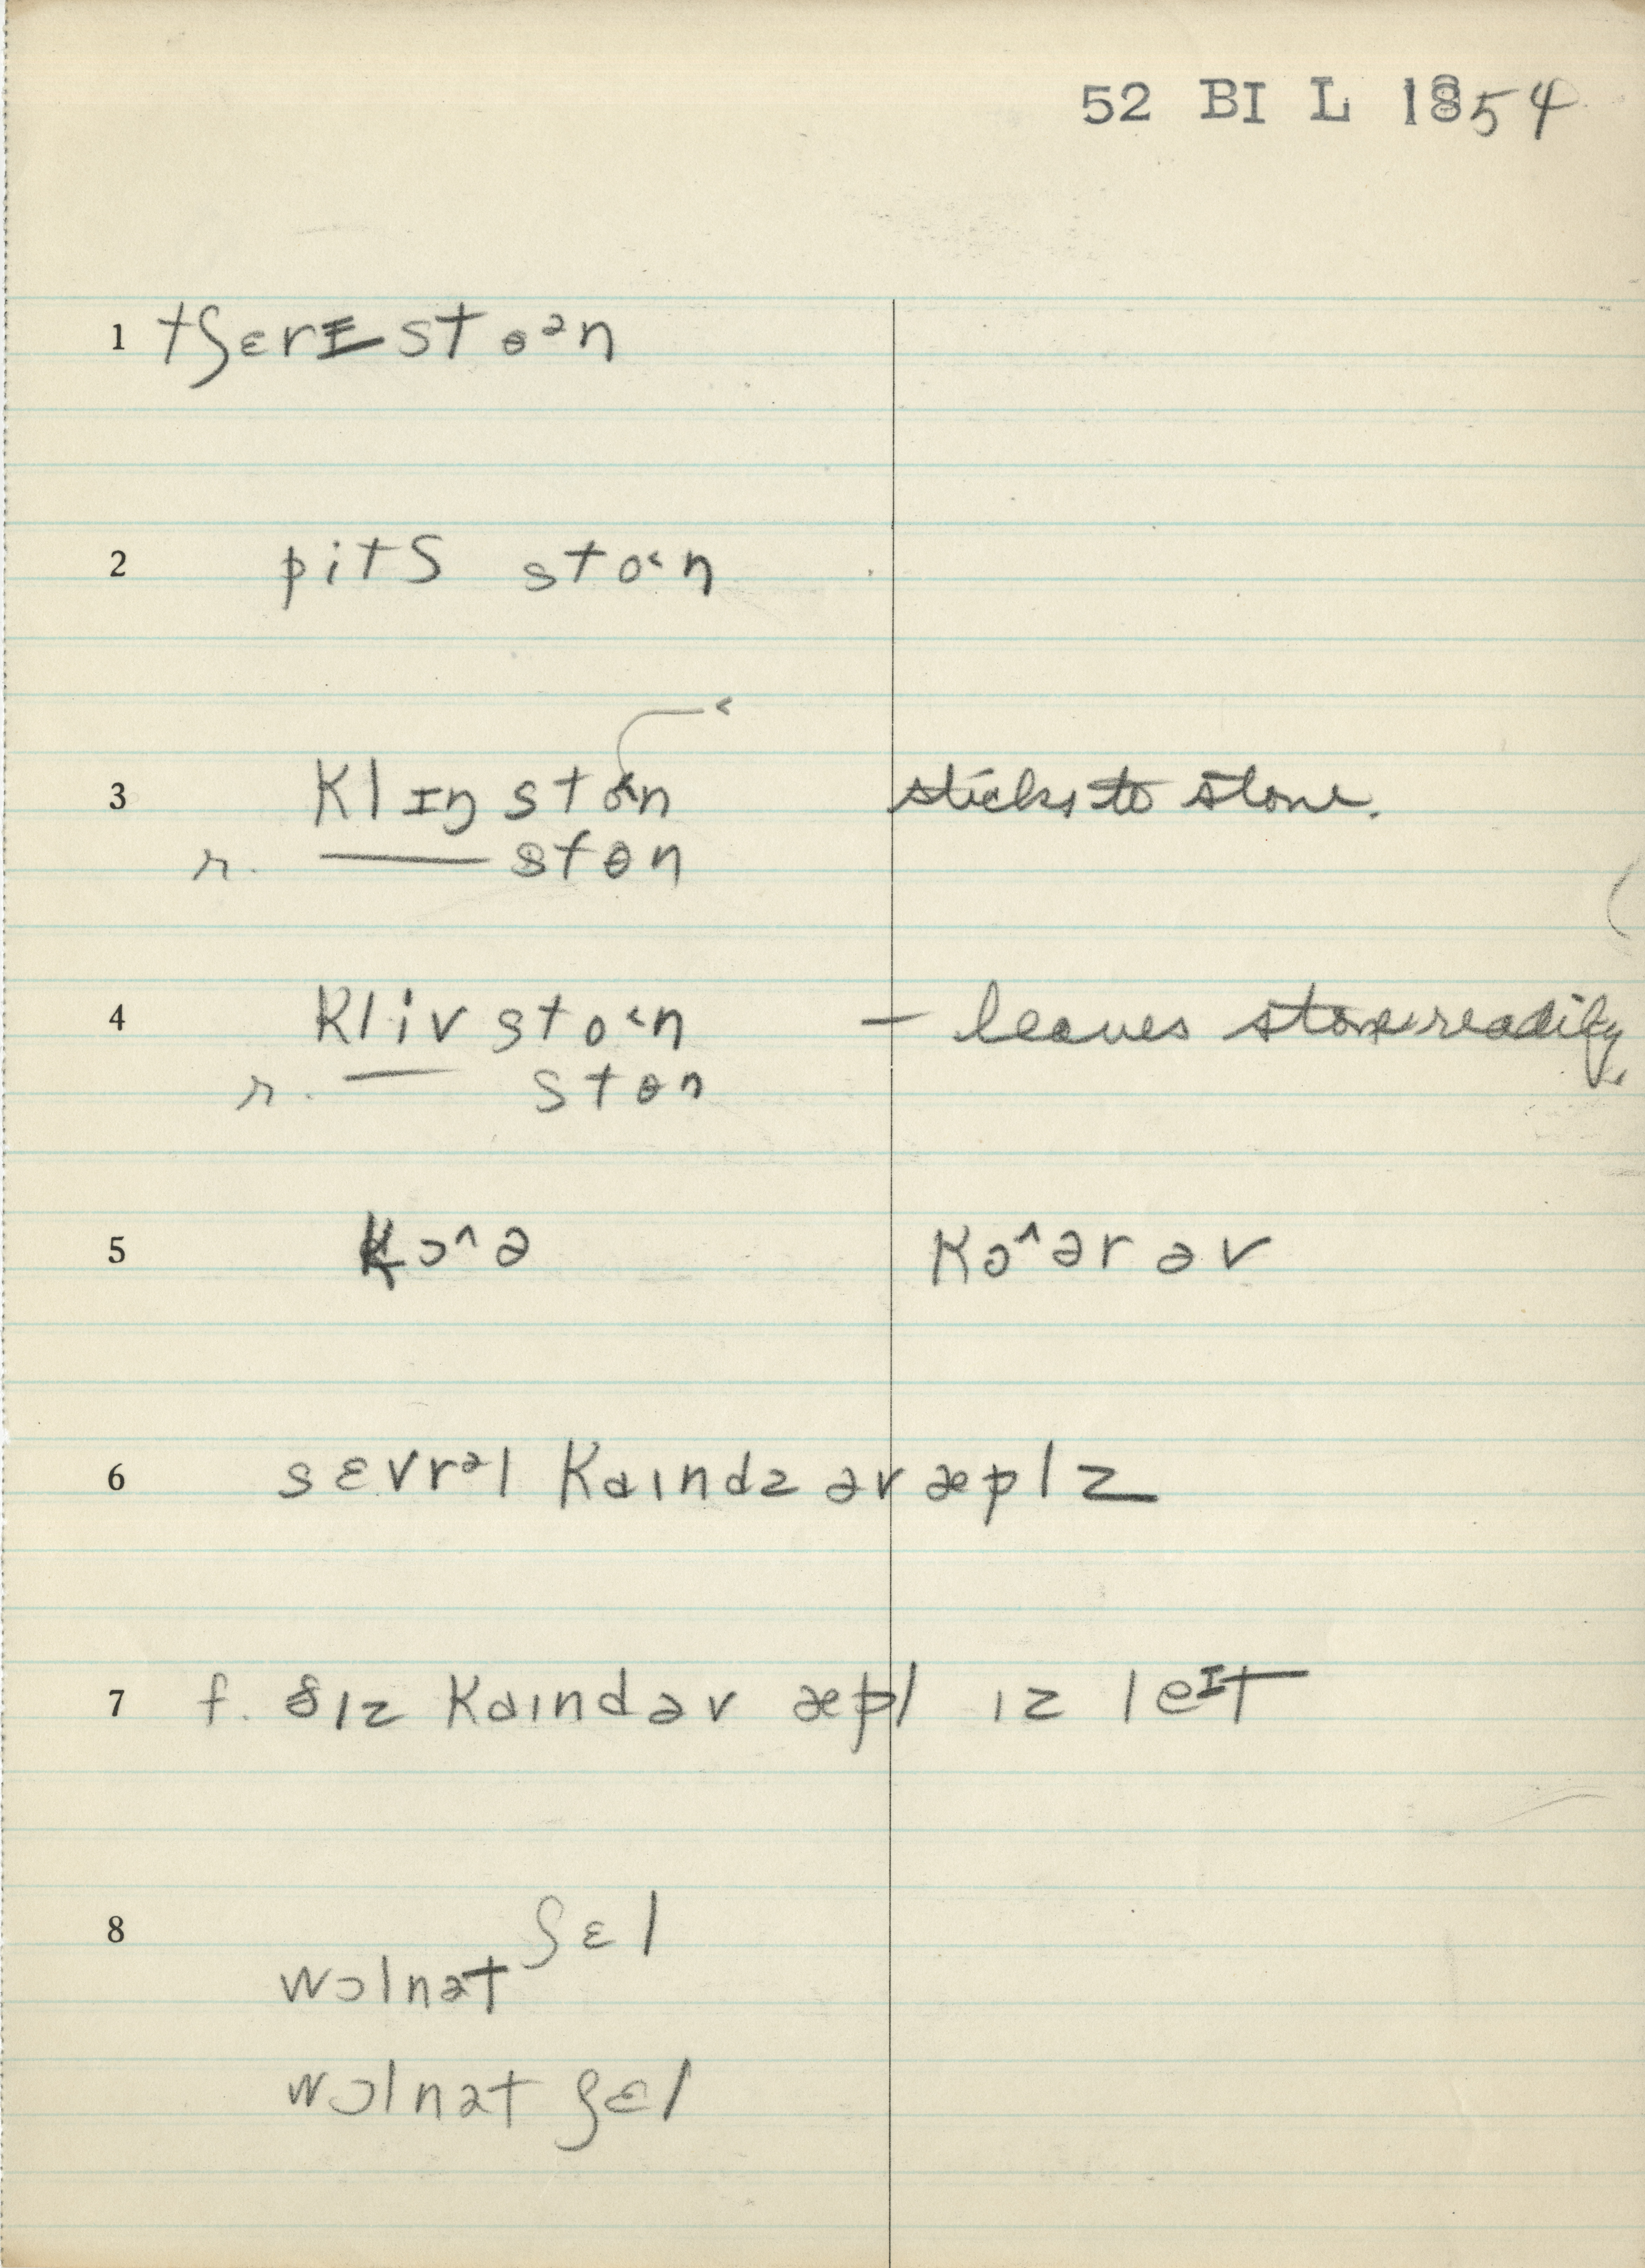 52 BI L 1854
1 tʃɛrɪ stɵᵊn
2 pitʃ sto˂n
<
3 klɪŋ sto˂n sticks to stone.
r. — stɵn
4 kliv sto˂n – leaves stone readily.
r. — stɵn
5 kɔ^ə kɔ^ər əv
6 sɛvrᵊl kaɪndz əv æplz
7 f. ðɪz kaɪnd əv æpl ɪz leᶦt
8 ʃɛl
wɔlnət
wɔlnət ʃɛl